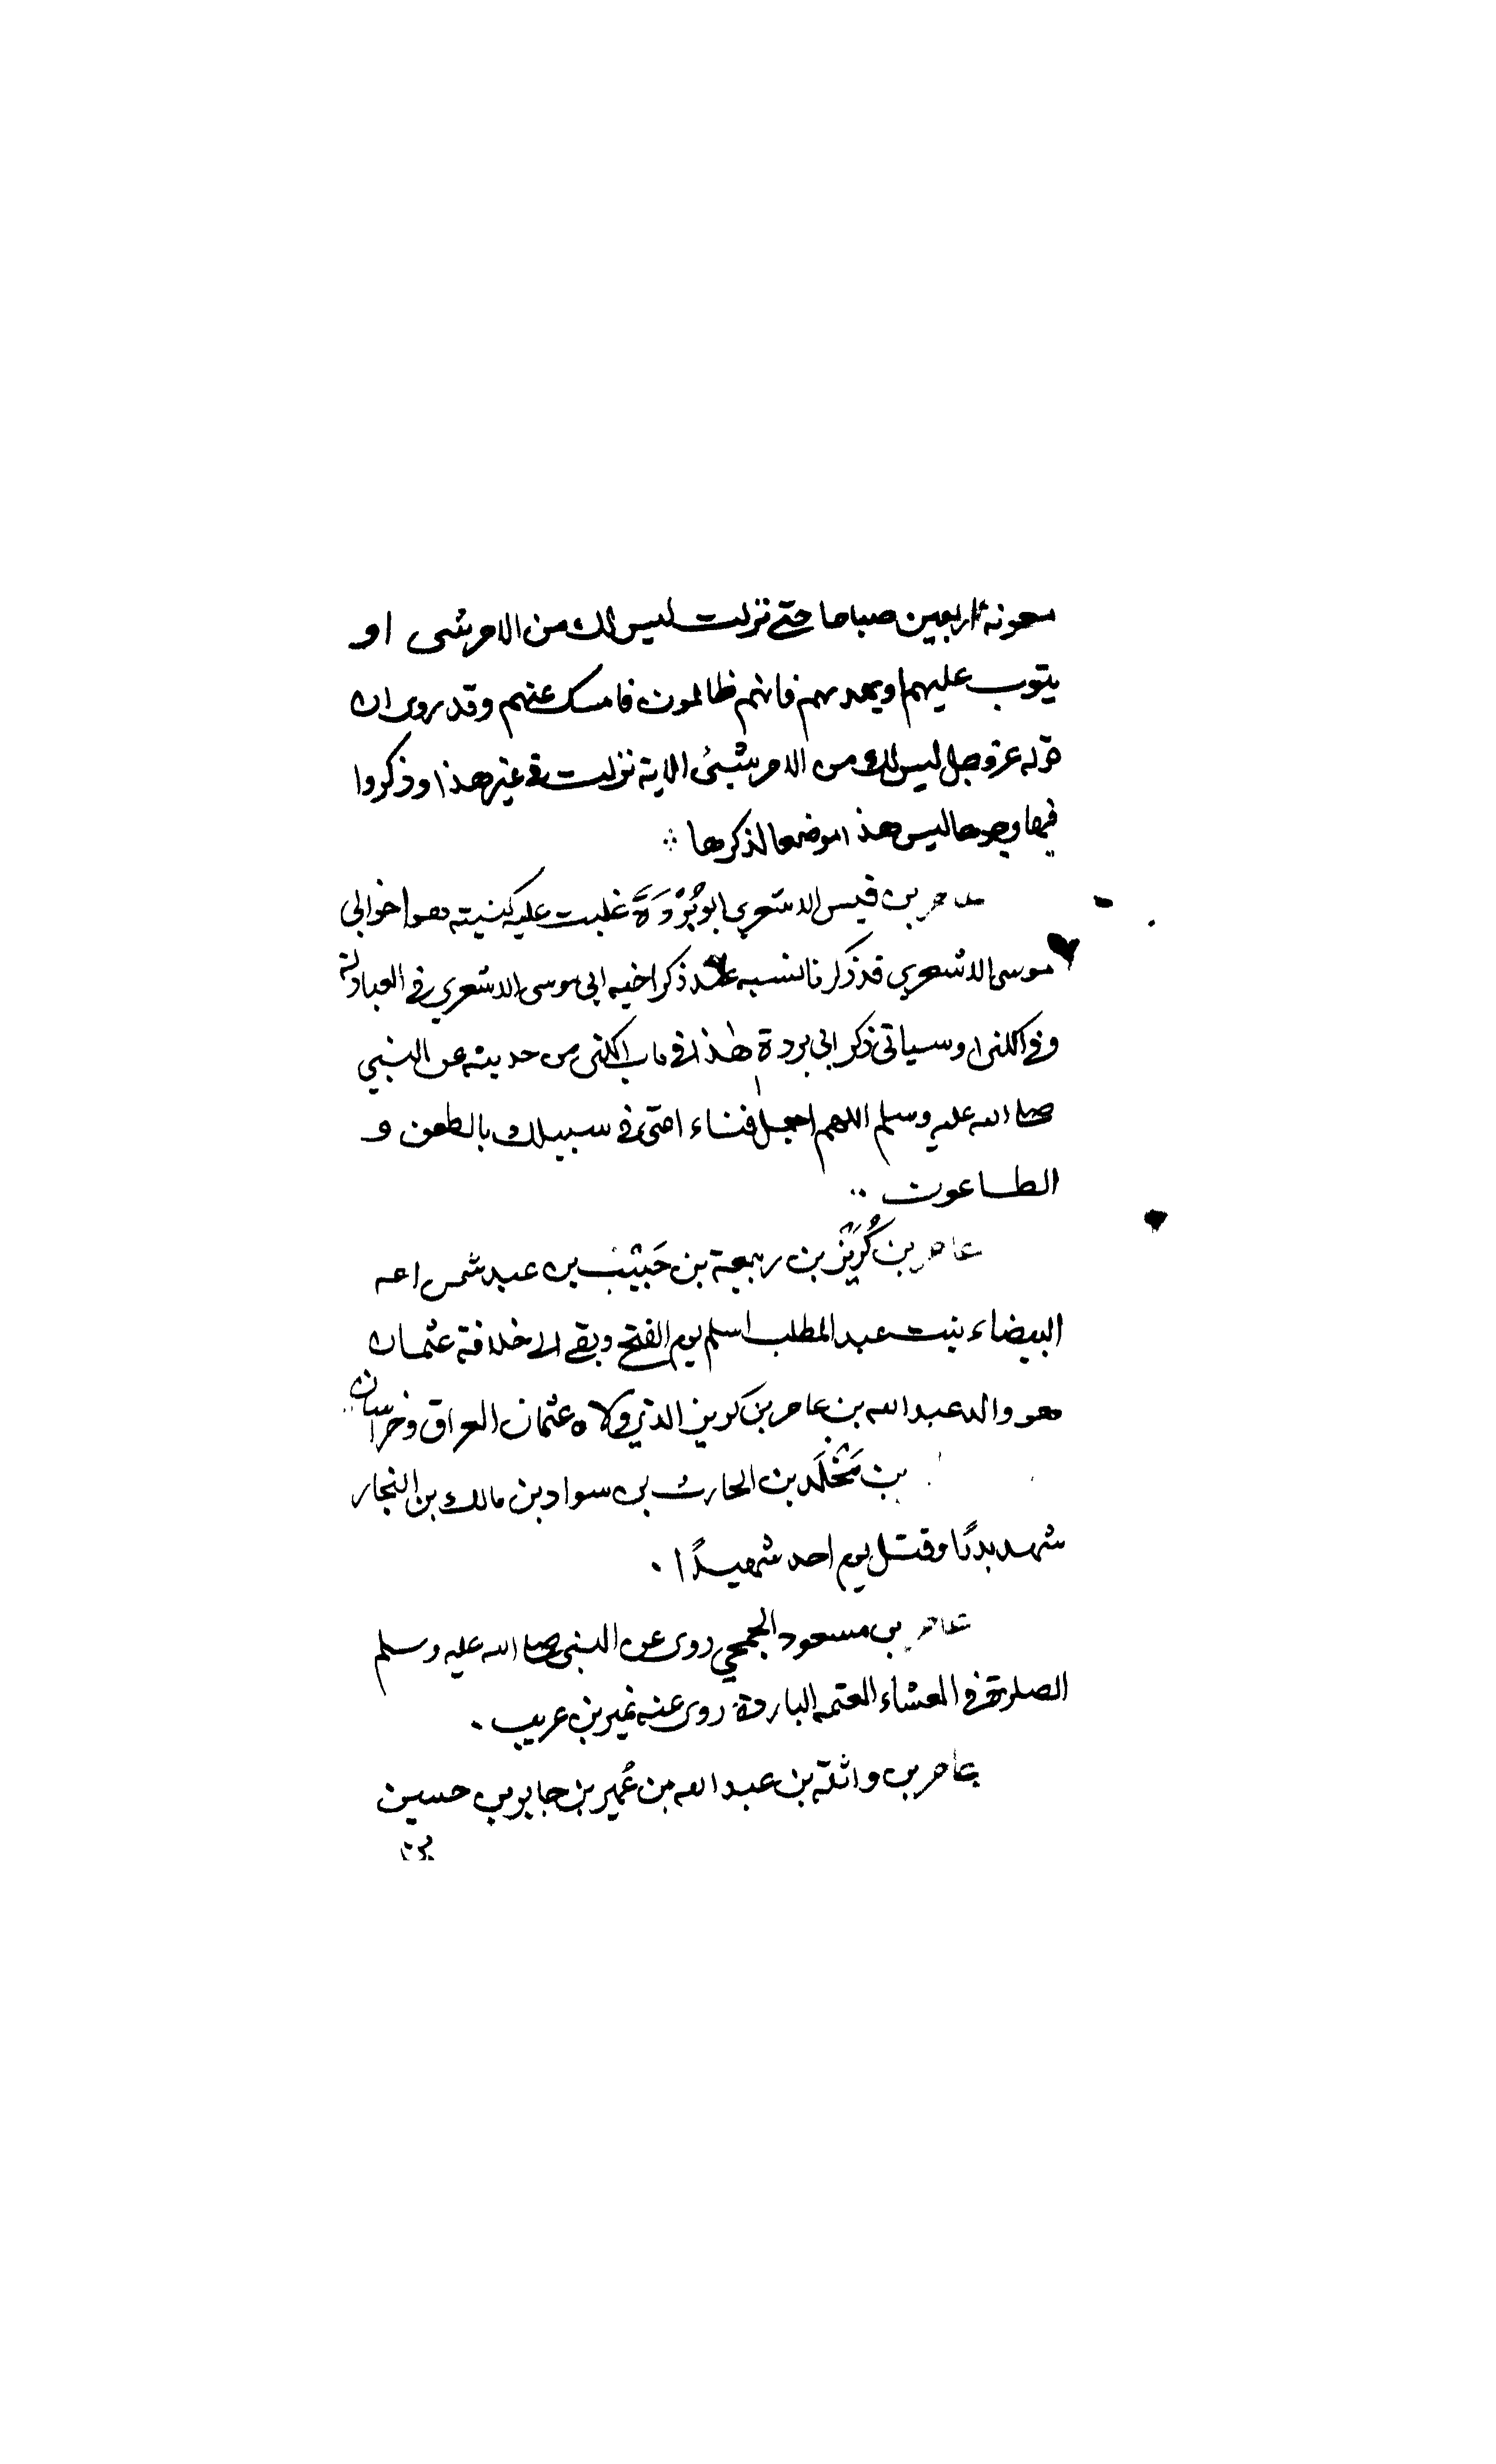 معونة اربعين صباحا حتى نزلت ليس لك من الامر شى او
يتوب عليهم او يعذبهم فانهم ظالمون فامسك عنهم وقد روى ان
قوله عز وجل ليس لك من الامر شئ الاية نزلت فى غير هذا وذكروا
فيها وجوها ليس هذا موضعا لذكرها
عامر بن قيس الاشعري ابو بُرْدَةَ غلبت عليه كنيته وهو اخو ابى
موسى الاشعري قد ذكرنا نسبه عند ذكر اخيه ابى موسى الاشعري في العبادلة
وفي الكنى وسياتى ذكر ابى بردة هذا فى باب الكنى من حديثه عن النبي
صلى الله عليه وسلم اللهم اجعل فناء امتى فى سبيلك بالطعن و
الطاعون
عامر بن كُرَيْز بن ربيعة بن حَبِيْب بن عبد شمس امه
البيضاء بنت عبد المطلب اسلم يوم الفتح وبقى الى خلافة عثمان
هو والد عبد الله بن عامر بن كريز الذي ولاه عثمان العراق وخراسان
بن مَخْلَد بن الحارث بن سواد بن مالك بن النجار
شهد بدرًا وقتل يوم احد شهيدًا
عامر بن مسعود الجمحي روى عن النبى صلى الله عليه وسلم
الصلوة في العشاء العتمه الباردة روى عنه نمير بن عريب
عامر بن واثلة بن عبد الله بن عُمير بن جابر بن حسين